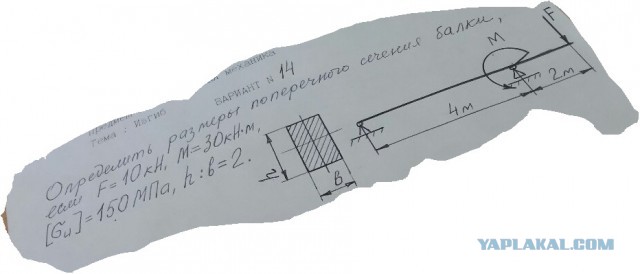 механика
Тема : Изгиб
ВАРИАНТ N 14
Определить размеры поперечного сечения балки,
если F=10кН, M=30кН·м,
[Gи]=150МПа, h:в=2.
h
в
M
F
4м
2м
YAPLAKAL.COM